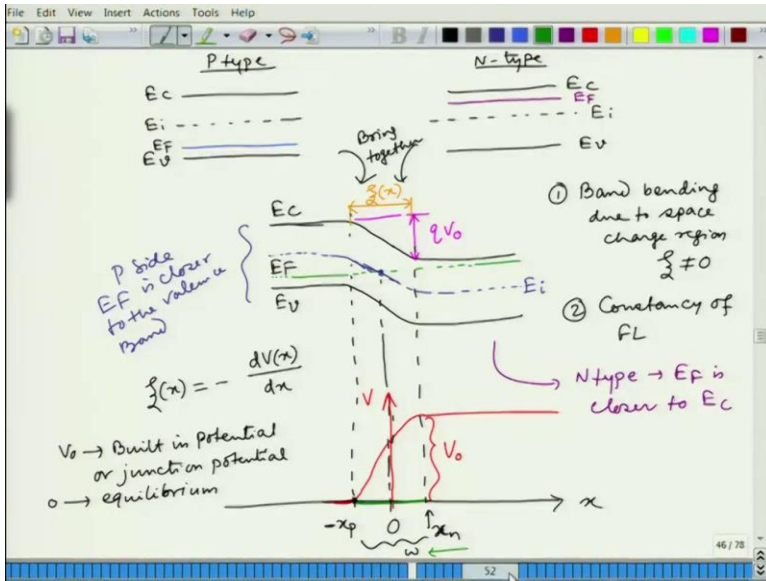 File Edit View Insert Actions Tools Help
P type
N-type
Ec
Ei
EF
Ev
Ec
EF
Ei
Ev
Bring
together
ξ(x)
Ec
qVo
EF
Ev
Ei
P side
EF is closer
to the valence
Band
① Band bending
due to space
charge region
ξ ≠ 0
② Constancy of
FL
N type → EF is
closer to Ec
ξ(x) = - dV(x)/dx
V
Vo
Vo → Built in potential
or junction potential
o → equilibrium
-xp 0 xn x
w
46 / 78
52